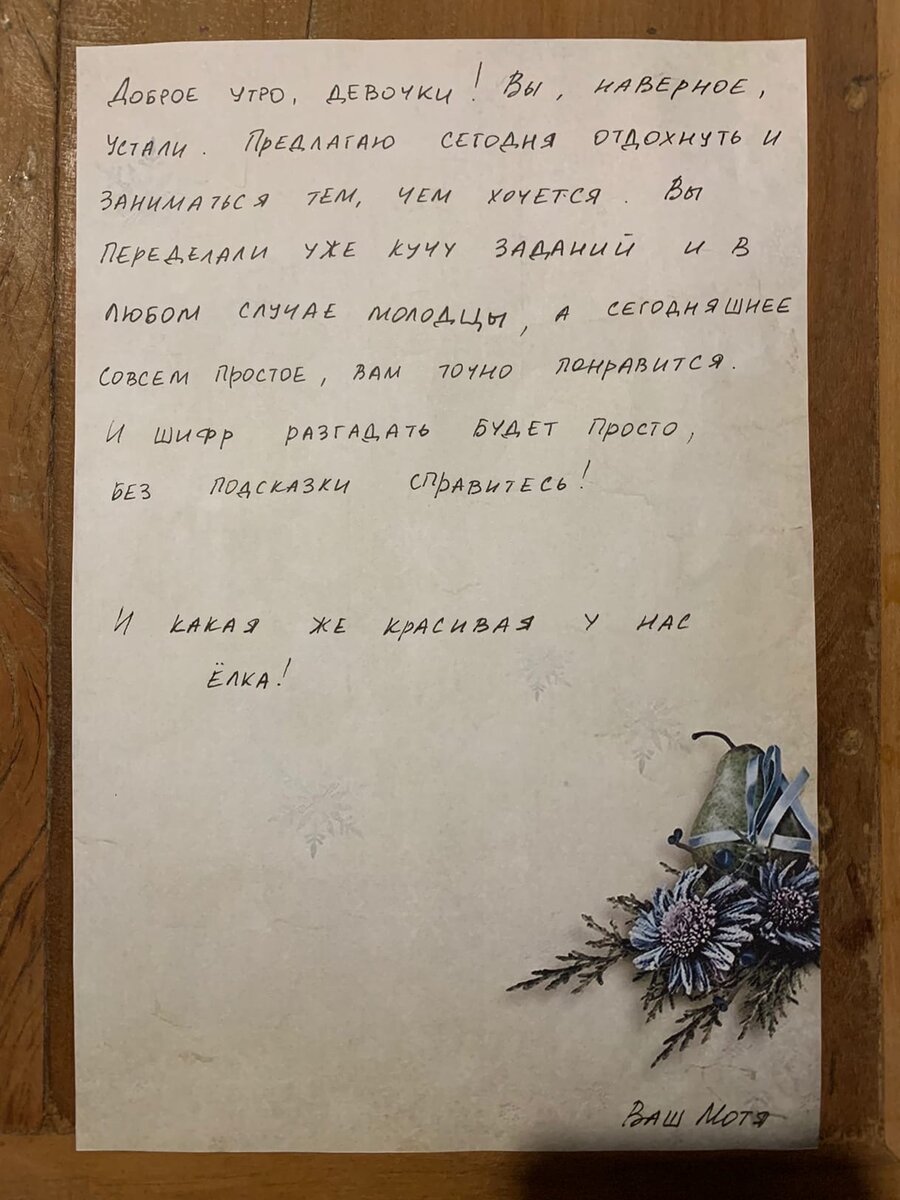 Доброе утро, девочки! Вы, наверное,
устали. Предлагаю сегодня отдохнуть и
заниматься тем, чем хочется. Вы
переделали уже кучу заданий и в
любом случае молодцы, а сегодняшнее
совсем простое, вам точно понравится.
И шифр разгадать будет просто,
без подсказки справитесь!
И какая же красивая у нас
ёлка!
Ваш Мотя